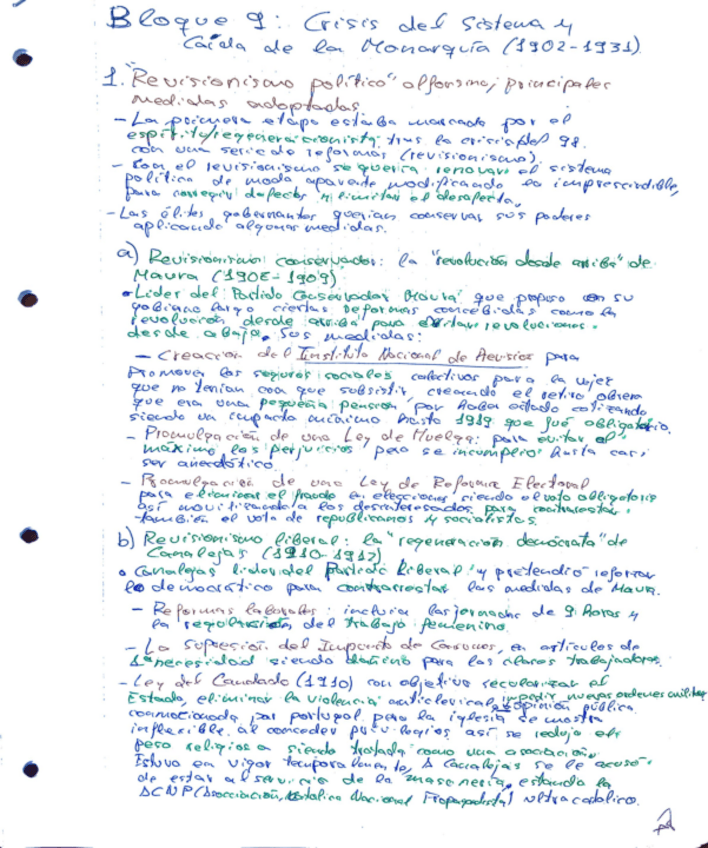 Bloque 9: Crisis del Sistema y
Caída de la Monarquía (1902-1931)
1. "Revisionismo político" alfonsino; principales
medidas adoptadas
- La primera etapa estaba marcada por el
espíritu regeneracionista tras la crisis del 98.
con una serie de reformas (revisionismo).
- Con el revisionismo se quería renovar el sistema
político de modo aparente modificando lo imprescindible,
para corregir defectos y limitar el desafecto.
- Las élites gobernantes querían conservar sus poderes
aplicando algunas medidas.
a) Revisionismo conservador: la "revolución desde arriba" de
Maura (190 - 1909)
• Líder del Partido Conservador Maura que propuso en su
gobierno largo ciertas reformas concebidas como la
revolución desde arriba para evitar revoluciones
desde abajo. Sus medidas:
- Creación del Instituto Nacional de Previsión para
promover los seguros sociales colectivos para la
que no tenían con que subsistir, creando el retiro obrero
que era una pequeña pensión por haber estado cotizando
siendo un impacto mínimo hasta 1919 que fué obligatorio.
- Promulgación de una Ley de Huelga: para evitar al
máximo los perjuicios pero se incumplió hasta casi
ser anecdótico.
- Promulgación de una Ley de Reforma Electoral
para eliminar el fraude en elecciones siendo el voto obligatorio
así movilizando a los desinteresados para contrarrestar
también el voto de republicanos y socialistas.
b) Revisionismo liberal: la "regeneración demócrata" de
Canalejas (1910-1912)
• Canalejas líder del Partido Liberal y pretendió reforzar
lo democrático para contrarrestar las medidas de Maura.
- Reformas laborales: incluía las jornadas de 9 horas y
la regulación del trabajo femenino
- La supresión del Impuesto de Consumos, en artículos de
1ª necesidad siendo dañino para las clases trabajadoras.
- Ley del Candado (1910) con objetivo secularizar el
Estado, eliminar la violencia anticlerical, impedir nuevas ordenes
y opinión pública
conmocionada por portugal pero la iglesia se mostró
inflexible al conceder privilegios así se redujo el
peso religioso siendo tratada como una asociación.
Estuvo en vigor temporalmente, A Canalejas se le acusó
de estar al servicio de la masonería, estando la
ACNP (Asociación Católica Nacional Propagandista) ultracatólico.